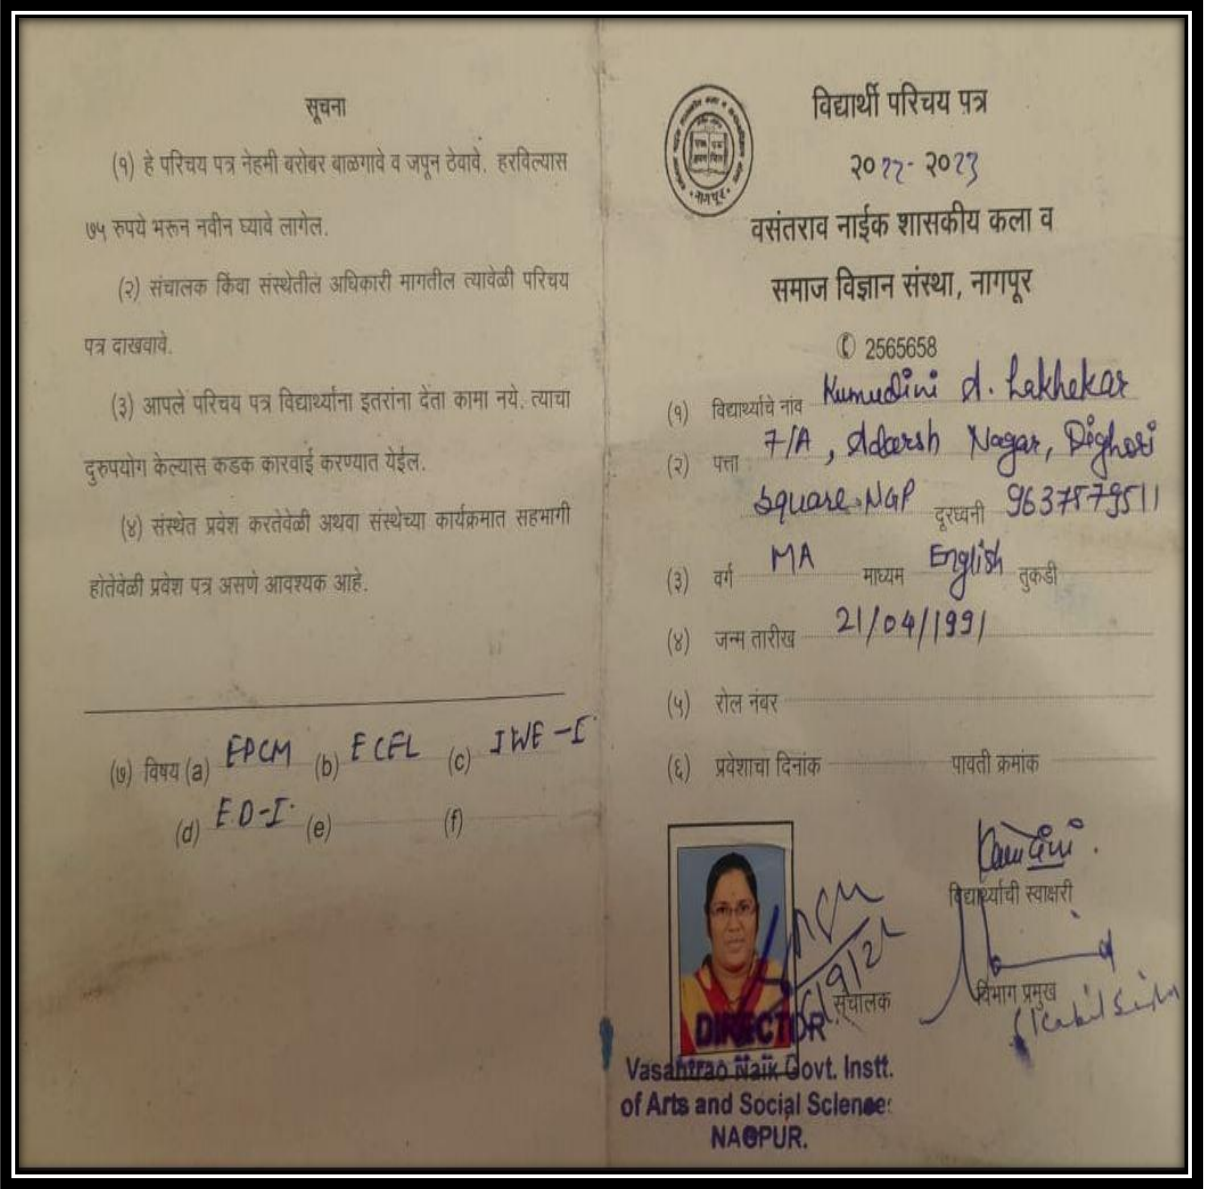 सूचना
(१) हे परिचय पत्र नेहमी बरोबर बाळगावे व जपून ठेवावे. हरविल्यास
७५ रुपये भरून नवीन घ्यावे लागेल.
(२) संचालक किंवा संस्थेतील अधिकारी मागतील त्यावेळी परिचय
पत्र दाखवावे.
(३) आपले परिचय पत्र विद्यार्थ्यांना इतरांना देता कामा नये. त्याचा
दुरुपयोग केल्यास कडक कारवाई करण्यात येईल.
(४) संस्थेत प्रवेश करतेवेळी अथवा संस्थेच्या कार्यक्रमात सहभागी
होतेवेळी प्रवेश पत्र असणे आवश्यक आहे.
(७) विषय (a) EPCM (b) ECFL (c) IWE-I
(d) E.D-I. (e) (f)
विद्यार्थी परिचय पत्र
२०२२-२०२३
वसंतराव नाईक शासकीय कला व
समाज विज्ञान संस्था, नागपूर
✆ 2565658
(१) विद्यार्थ्याचे नांव Kumudini D. Lakhekar
(२) पत्ता 7/A, Adarsh Nagar, Dighori
Square, NGP दूरध्वनी 9637579511
(३) वर्ग MA माध्यम English तुकडी
(४) जन्म तारीख 21/04/1991
(५) रोल नंबर
(६) प्रवेशाचा दिनांक पावती क्रमांक
विद्यार्थ्याची स्वाक्षरी
संचालक
विभाग प्रमुख
DIRECTOR
Vasantrao Naik Govt. Instt.
of Arts and Social Science:
NAGPUR.